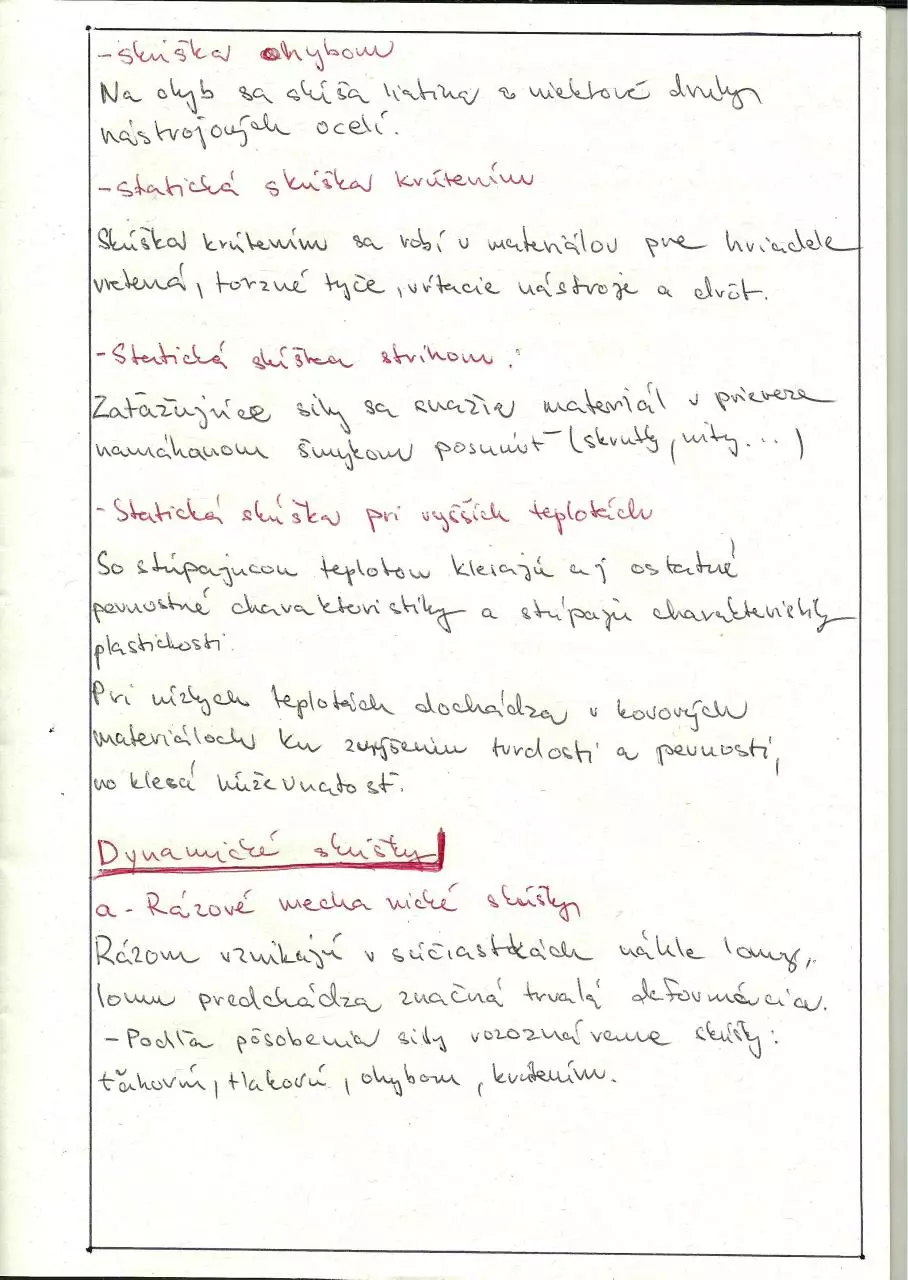 - skúška ohybom
Na ohyb sa skúša liatina a niektoré druhy
nástrojových ocelí.
- Statická skúška krútením
Skúška krútením sa robí u materiálov pre hriadele
vretená, torzné tyče, vŕtacie nástroje a drôt.
- Statická skúška strihom:
Zaťažujúce sily sa snažia materiál v priereze
namáhanom šmykom posunúť (skrutky, nity...)
- Statická skúška pri vyšších teplotách
So stúpajúcou teplotou klesajú aj ostatné
pevnostné charakteristiky a stúpajú charakteristiky
plastickosti.
Pri nízkych teplotách dochádza v kovových
materiáloch ku zvýšeniu tvrdosti a pevnosti,
no klesá húževnatosť.
Dynamické skúšky
a - Rázové mechanické skúšky
Rázom vznikajú v súčiastkách náhle lomy,
lomu predchádza značná trvalá deformácia.
- Podľa pôsobenia sily rozoznávame skúšky:
ťahovú, tlakovú, ohybom, krútením.